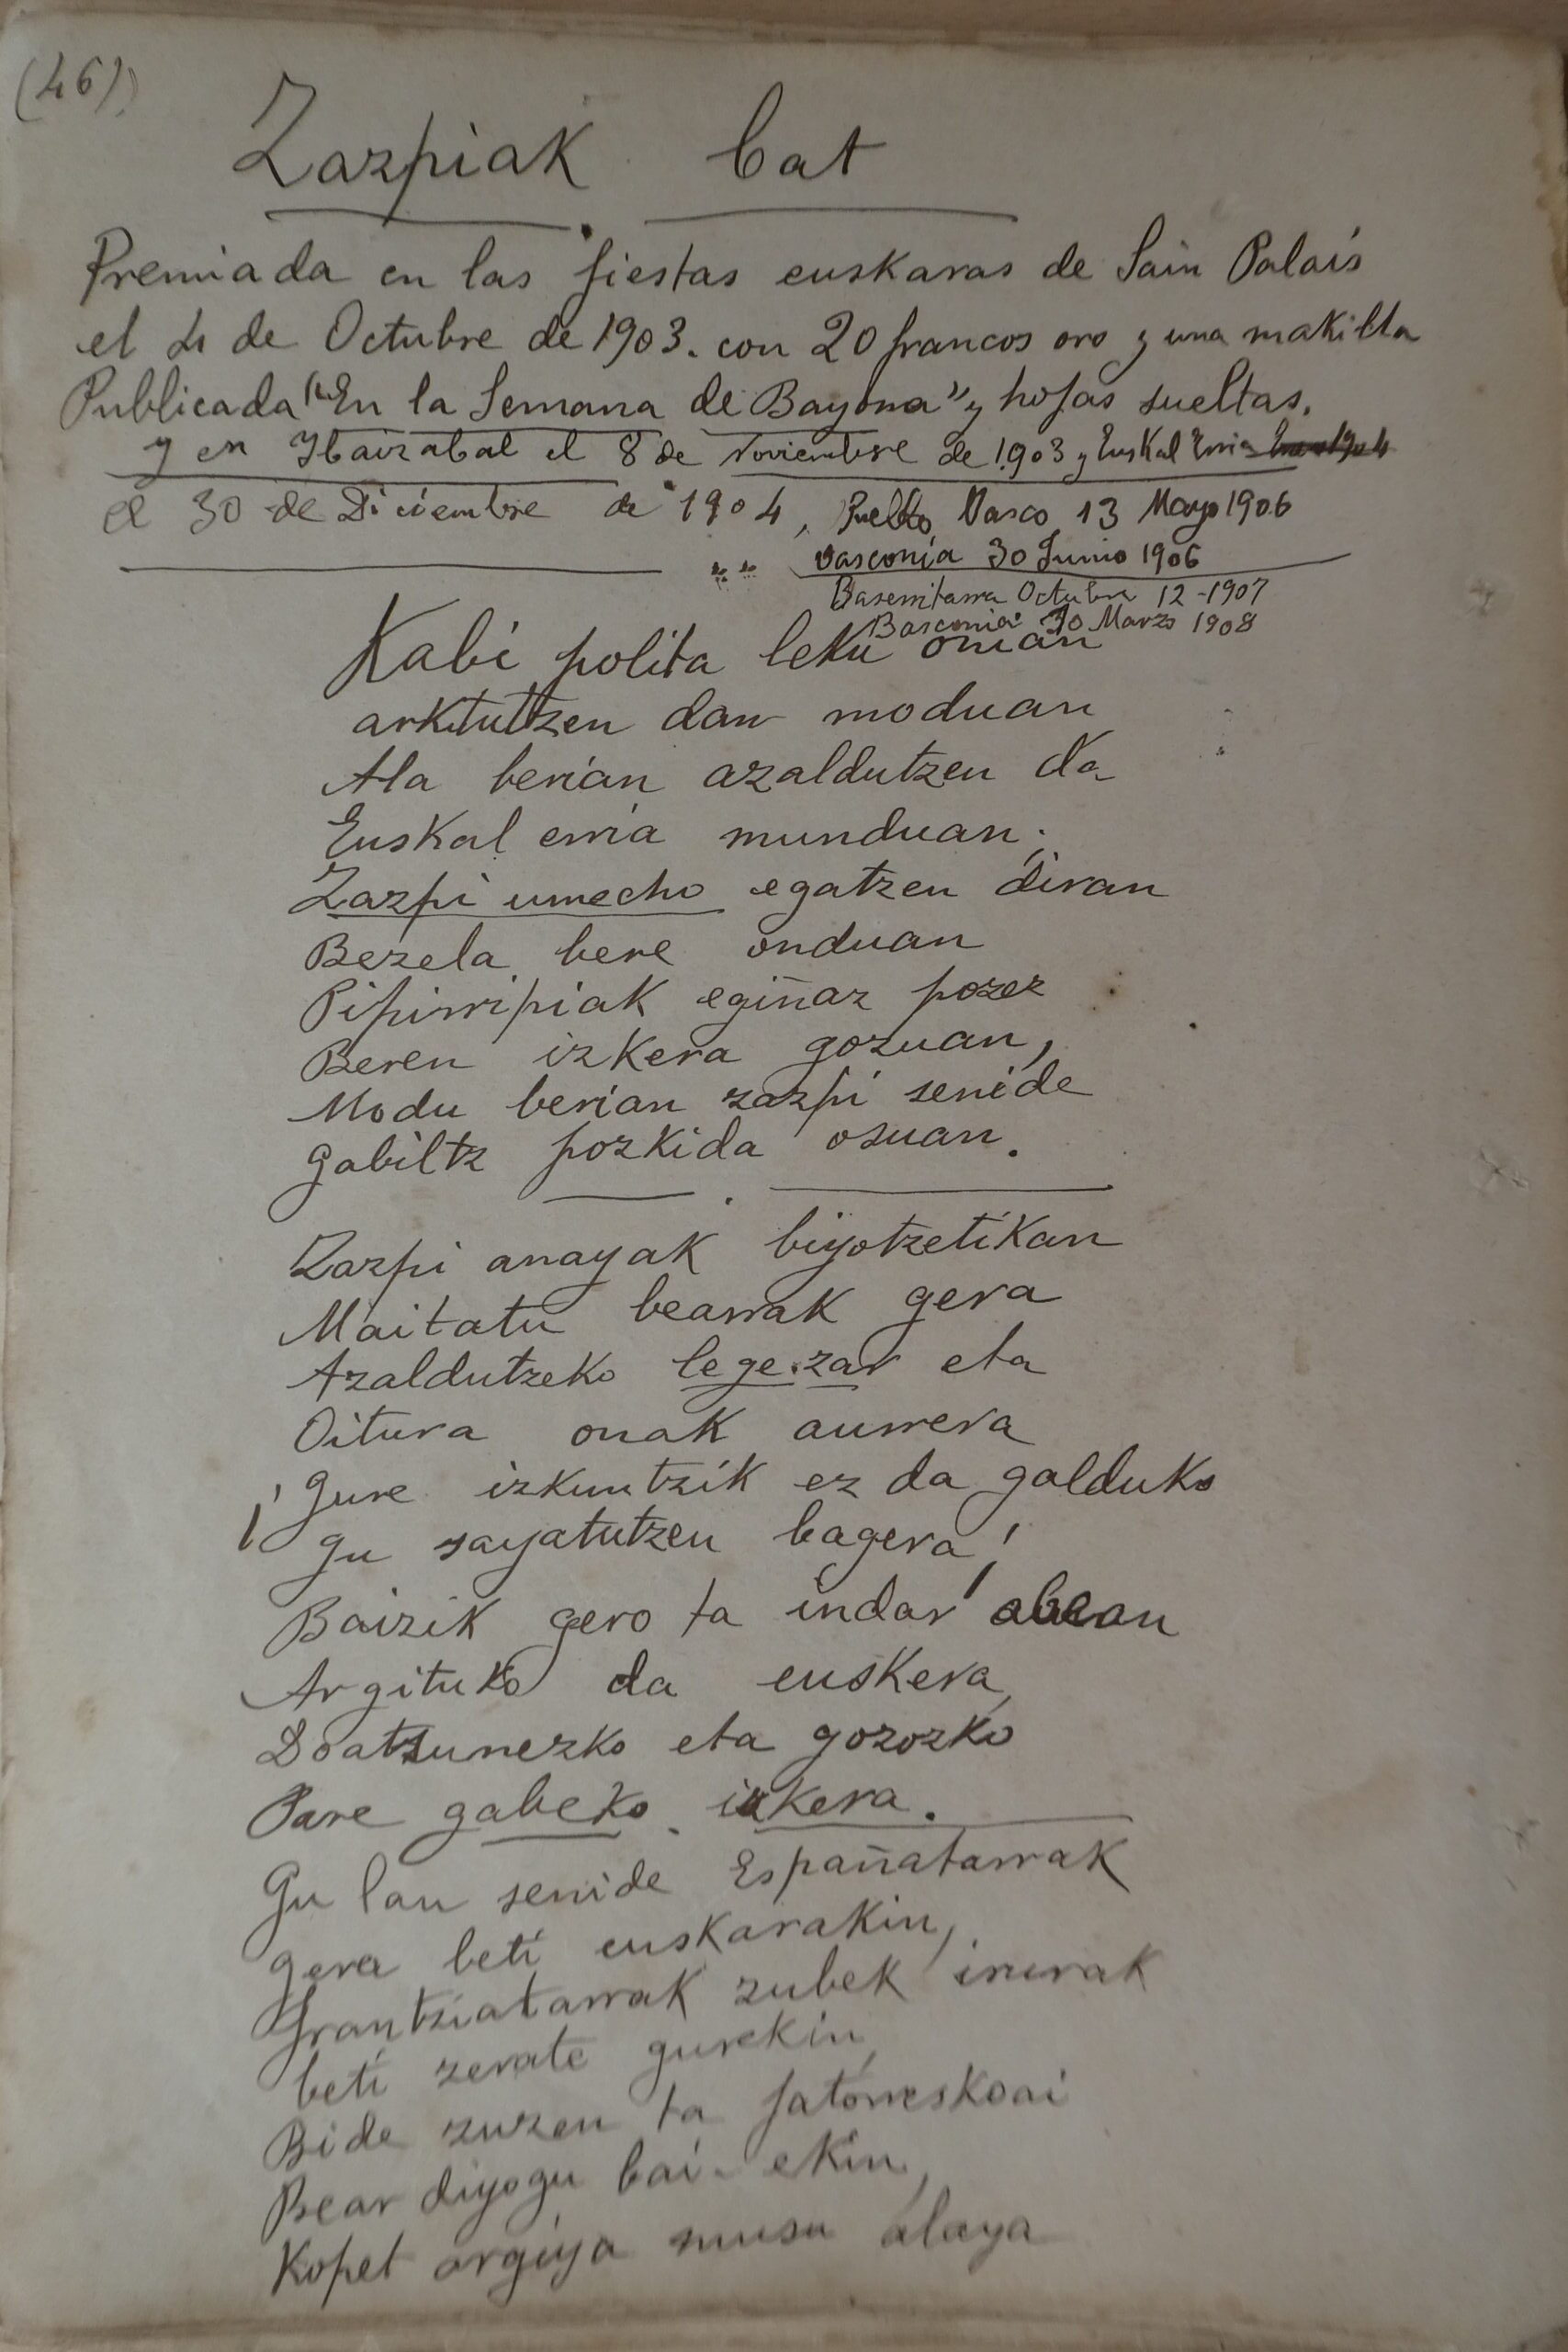 (46)
Zazpiak bat
Premiada en las fiestas euskaras de Sain Palais
el 4 de Octubre de 1903. con 20 francos oro y una makilla
Publicada "En la Semana de Bayona" y hojas sueltas.
y en Ibaizabal el 8 de Noviembre de 1903 y Euskal Erria
el 30 de Diciembre de 1904, Pueblo Vasco 13 Mayo 1906
vasconia 30 Junio 1906
Baserritarra Octubre 12-1907
Basconia 30 Marzo 1908
Kabi polita leku onian
arkitutzen dan moduan
Ala berian azaldutzen da
Euskal erria munduan;
Zazpi umecho egatzen diran
Bezela bere onduan
Pipirripiak egiñaz pozez
Beren izkera gozuan,
Modu berian zazpi senide
gabiltz pozkida osuan.
Zazpi anayak biyotzetikan
Maitatu bearrak gera
Azaldutzeko lege.zar eta
Oitura onak aurrera
¡Gure izkuntzik ez da galduko
gu sayatutzen bagera!
Baizik gero ta indar
Argituko da euskera,
Doatsunezko eta gozozko
Pare gabeko izkera.
Gu lau senide Españatarrak
gera beti euskarakin,
frantziatarrak zubek irurak
beti zerate gurekin,
Bide zuzen ta jatorreskoai
Bear diyogu bai-ekin,
Kopet argiya musu alaya